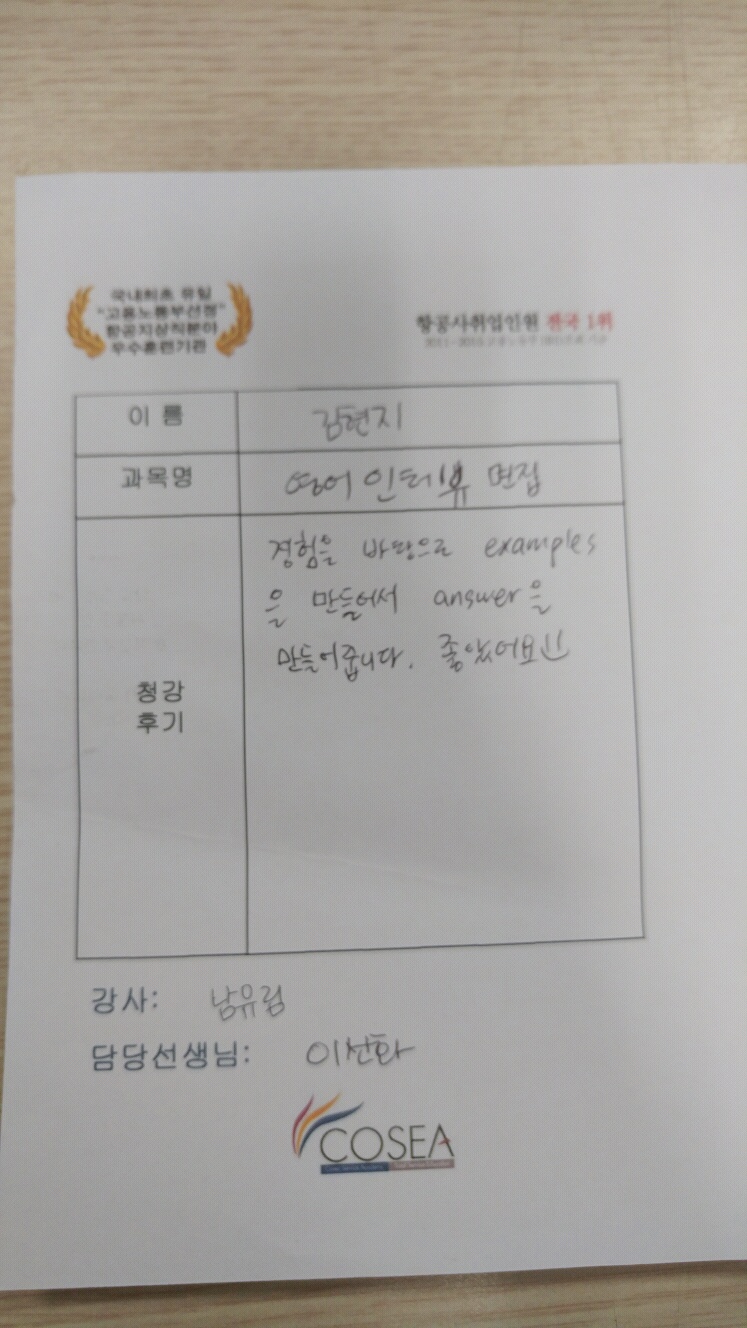 국내최초 유일
"고용노동부선정"
항공지상직분야
우수훈련기관
항공사취업인원 전국 1위
이 름 김현지
과목명 영어 인터뷰 면접
경험을 바탕으로 examples
을 만들어서 answer을
만들어줍니다. 좋았어요!!
청강
후기
강사: 남유림
담당선생님: 이선화
COSEA